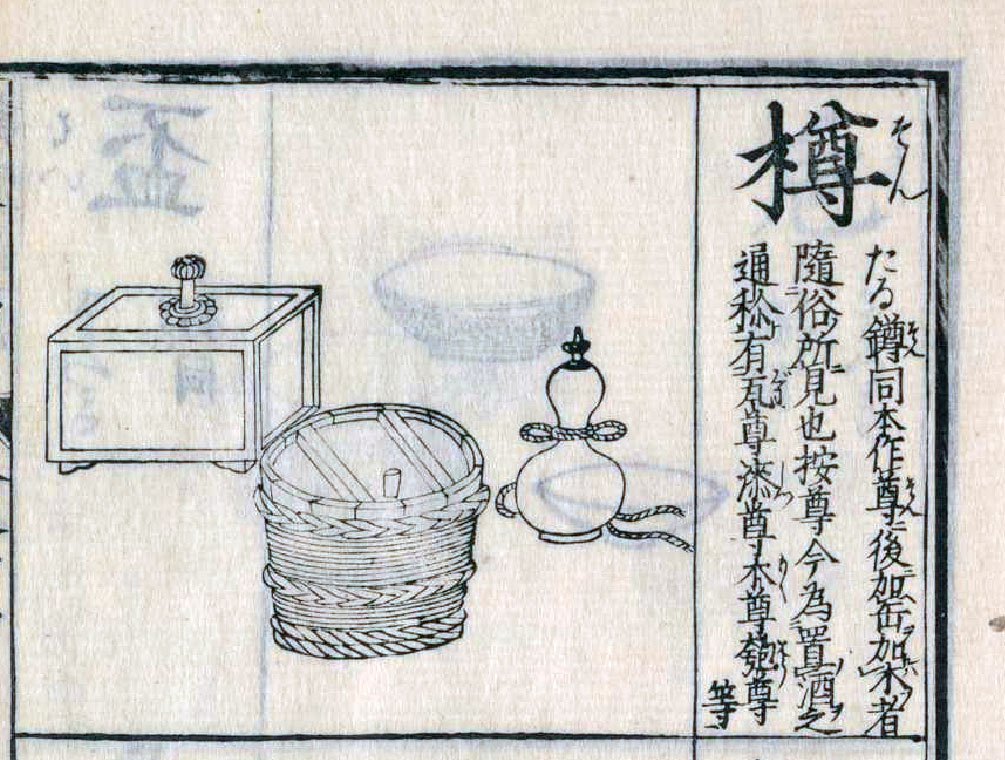 樽
そん
たる罇同本作尊後加缶加木者
隨俗所見也按尊今為置酒之
通称有瓦尊漆尊木尊匏尊
等